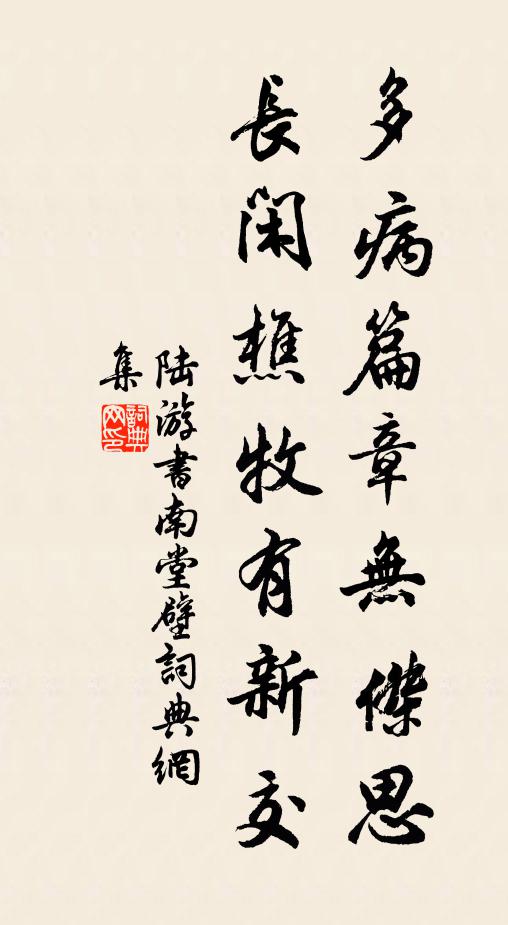 多病篇章無傑思
長閑樵牧有新交
陸游書南堂壁詞典網
集
詞典
网印